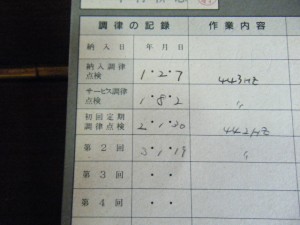 調律の記録 作業内容
納入日 年 月 日
納入調律
点検 1・2・7 443HZ
サービス調律
点検 1・8・2 〃
初回定期
調律点検 2・1・20 442HZ
第2回 3・1・19 〃
第3回 ・ ・
第4回 ・ ・